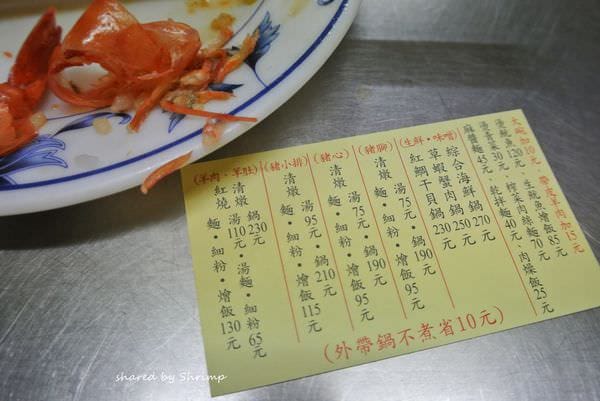 大碗加10元、帶皮羊肉加15元
燙魷魚120元・生魷魚燴飯85元
燙青菜30元・榨菜肉絲麵70元
麻醬麵45元・乾拌麵40元・肉燥飯25元
(生鮮・味噌)
綜合海鮮鍋270元
草蝦蟹肉鍋250元
紅鯛干貝鍋230元
(豬腳)
清燉 湯75元・鍋190元
麵・細粉・燴飯95元
(豬心)
清燉 湯75元・鍋190元
麵・細粉・燴飯95元
(豬小排)
清燉 湯95元・鍋210元
麵・細粉・燴飯115元
(羊肉・羊肚)
清燉 鍋230元
紅燒 湯110元・湯麵・細粉65元
麵・細粉・燴飯130元
(外帶鍋不煮省10元)
shared by Shrimp